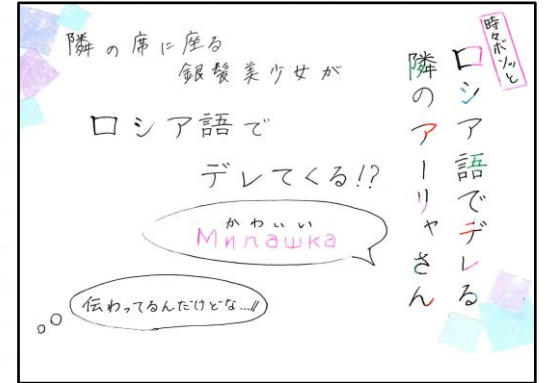 時々ボソッと
ロシア語でデレる
隣のアーリャさん
隣の席に座る
銀髪美少女が
ロシア語で
デレてくる!?
かわいい
Милашка
伝わってるんだけどな…!!